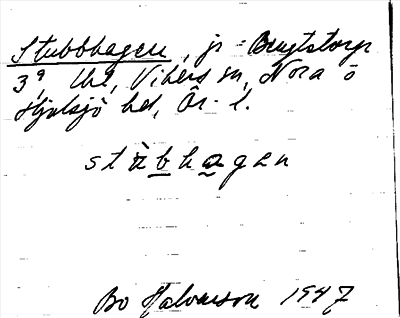 Stubbhagen, jr = Brugtstorp
3⁹, Uhl, Vikers sn, Nora o
Hjulsjö hd, Ör. l.
stùbhagen
Bo Halvarson 1947